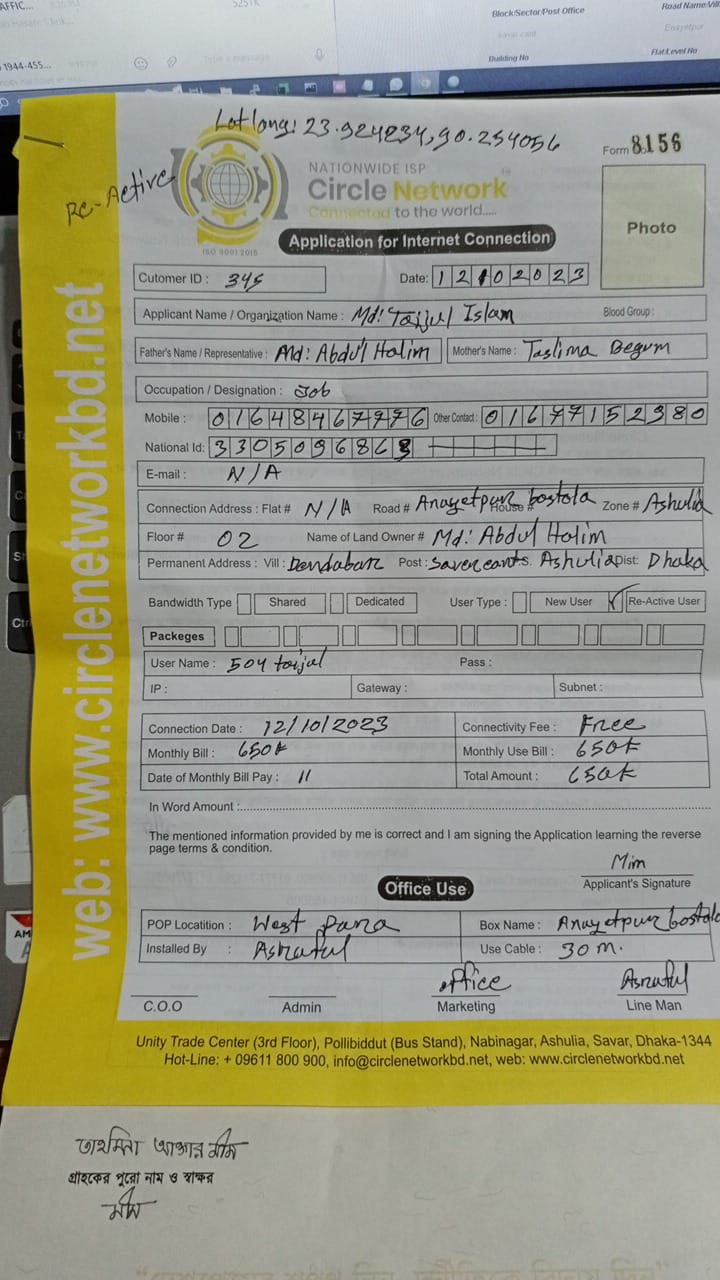 AFFIC...
Block/Sector/Post Office
Road Name/Vill
Enayetpur
1944-455...
Type a message
Building No
Flat/Level No
Lat long: 23.924234, 90.254056
Form 8156
Re-Active
NATIONWIDE ISP
Circle Network
Connected to the world.....
ISO 9001:2015
Photo
Application for Internet Connection
Cutomer ID : 345
Date: 12 10 2023
Applicant Name / Organization Name : Md: Taijul Islam Blood Group :
Father's Name / Representative : Md: Abdul Halim Mother's Name : Taslima Begum
Occupation / Designation : Job
Mobile : 01648467776 Other Contact : 01677152980
National Id: 3305096868
E-mail : N/A
Connection Address : Flat # N/A Road # Anayetpur bostola House # Zone # Ashulia
Floor # 02 Name of Land Owner # Md: Abdul Halim
Permanent Address : Vill : Dendabar Post : Savercants. Ashulia Dist: Dhaka
Bandwidth Type Shared Dedicated User Type : New User Re-Active User
Packeges
User Name : 504 taijul Pass :
IP : Gateway : Subnet :
Connection Date : 12/10/2023 Connectivity Fee : Free
Monthly Bill : 650k Monthly Use Bill : 650k
Date of Monthly Bill Pay : 11 Total Amount : 650k
In Word Amount :
The mentioned information provided by me is correct and I am signing the Application learning the reverse
page terms & condition.
Mim
Applicant's Signature
Office Use
POP Locatition : West para Box Name : Anayetpur bostola
Installed By : Asraful Use Cable : 30 m.
office Asraful
C.O.O Admin Marketing Line Man
Unity Trade Center (3rd Floor), Pollibiddut (Bus Stand), Nabinagar, Ashulia, Savar, Dhaka-1344
Hot-Line: + 09611 800 900, info@circlenetworkbd.net, web: www.circlenetworkbd.net
web: www.circlenetworkbd.net
তাহমিনা আক্তার মীম
গ্রাহকের পুরো নাম ও স্বাক্ষর
মীম